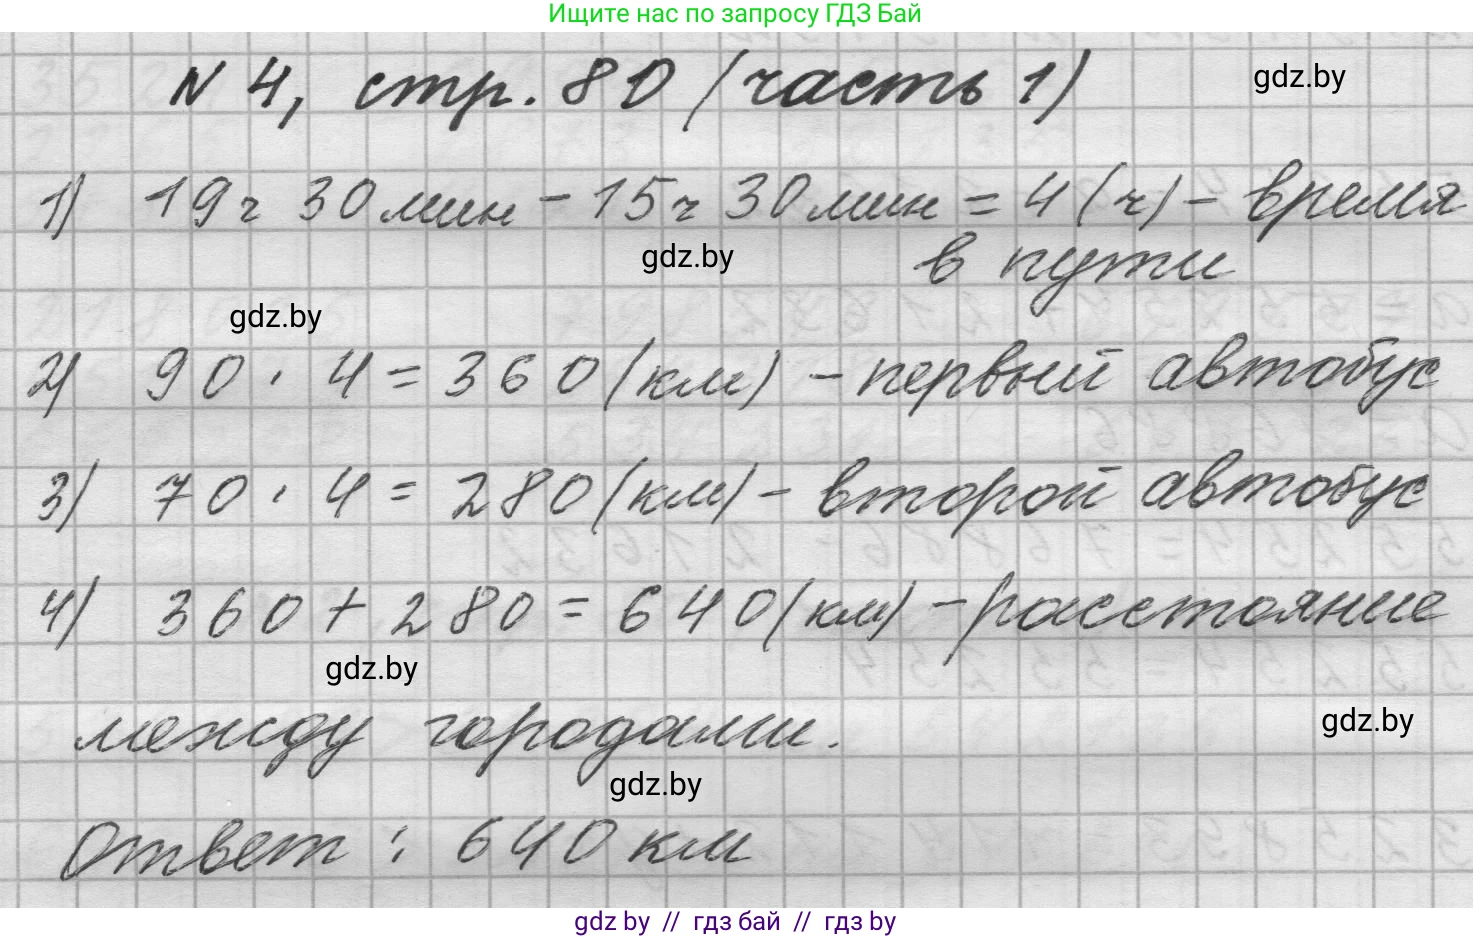 Ищите нас по запросу ГДЗ Бай
N 4, стр. 80 (часть 1)
gdz.by
1) 19ч 30мин - 15ч 30мин = 4 (ч) - время
в пути
gdz.by
gdz.by
2) 90 · 4 = 360 (км) - первый автобус
3) 70 · 4 = 280 (км) - второй автобус
4) 360 + 280 = 640 (км) - расстояние
gdz.by
между городами.
gdz.by
gdz.by
Ответ: 640 км
gdz by // гдз бай // гдз by